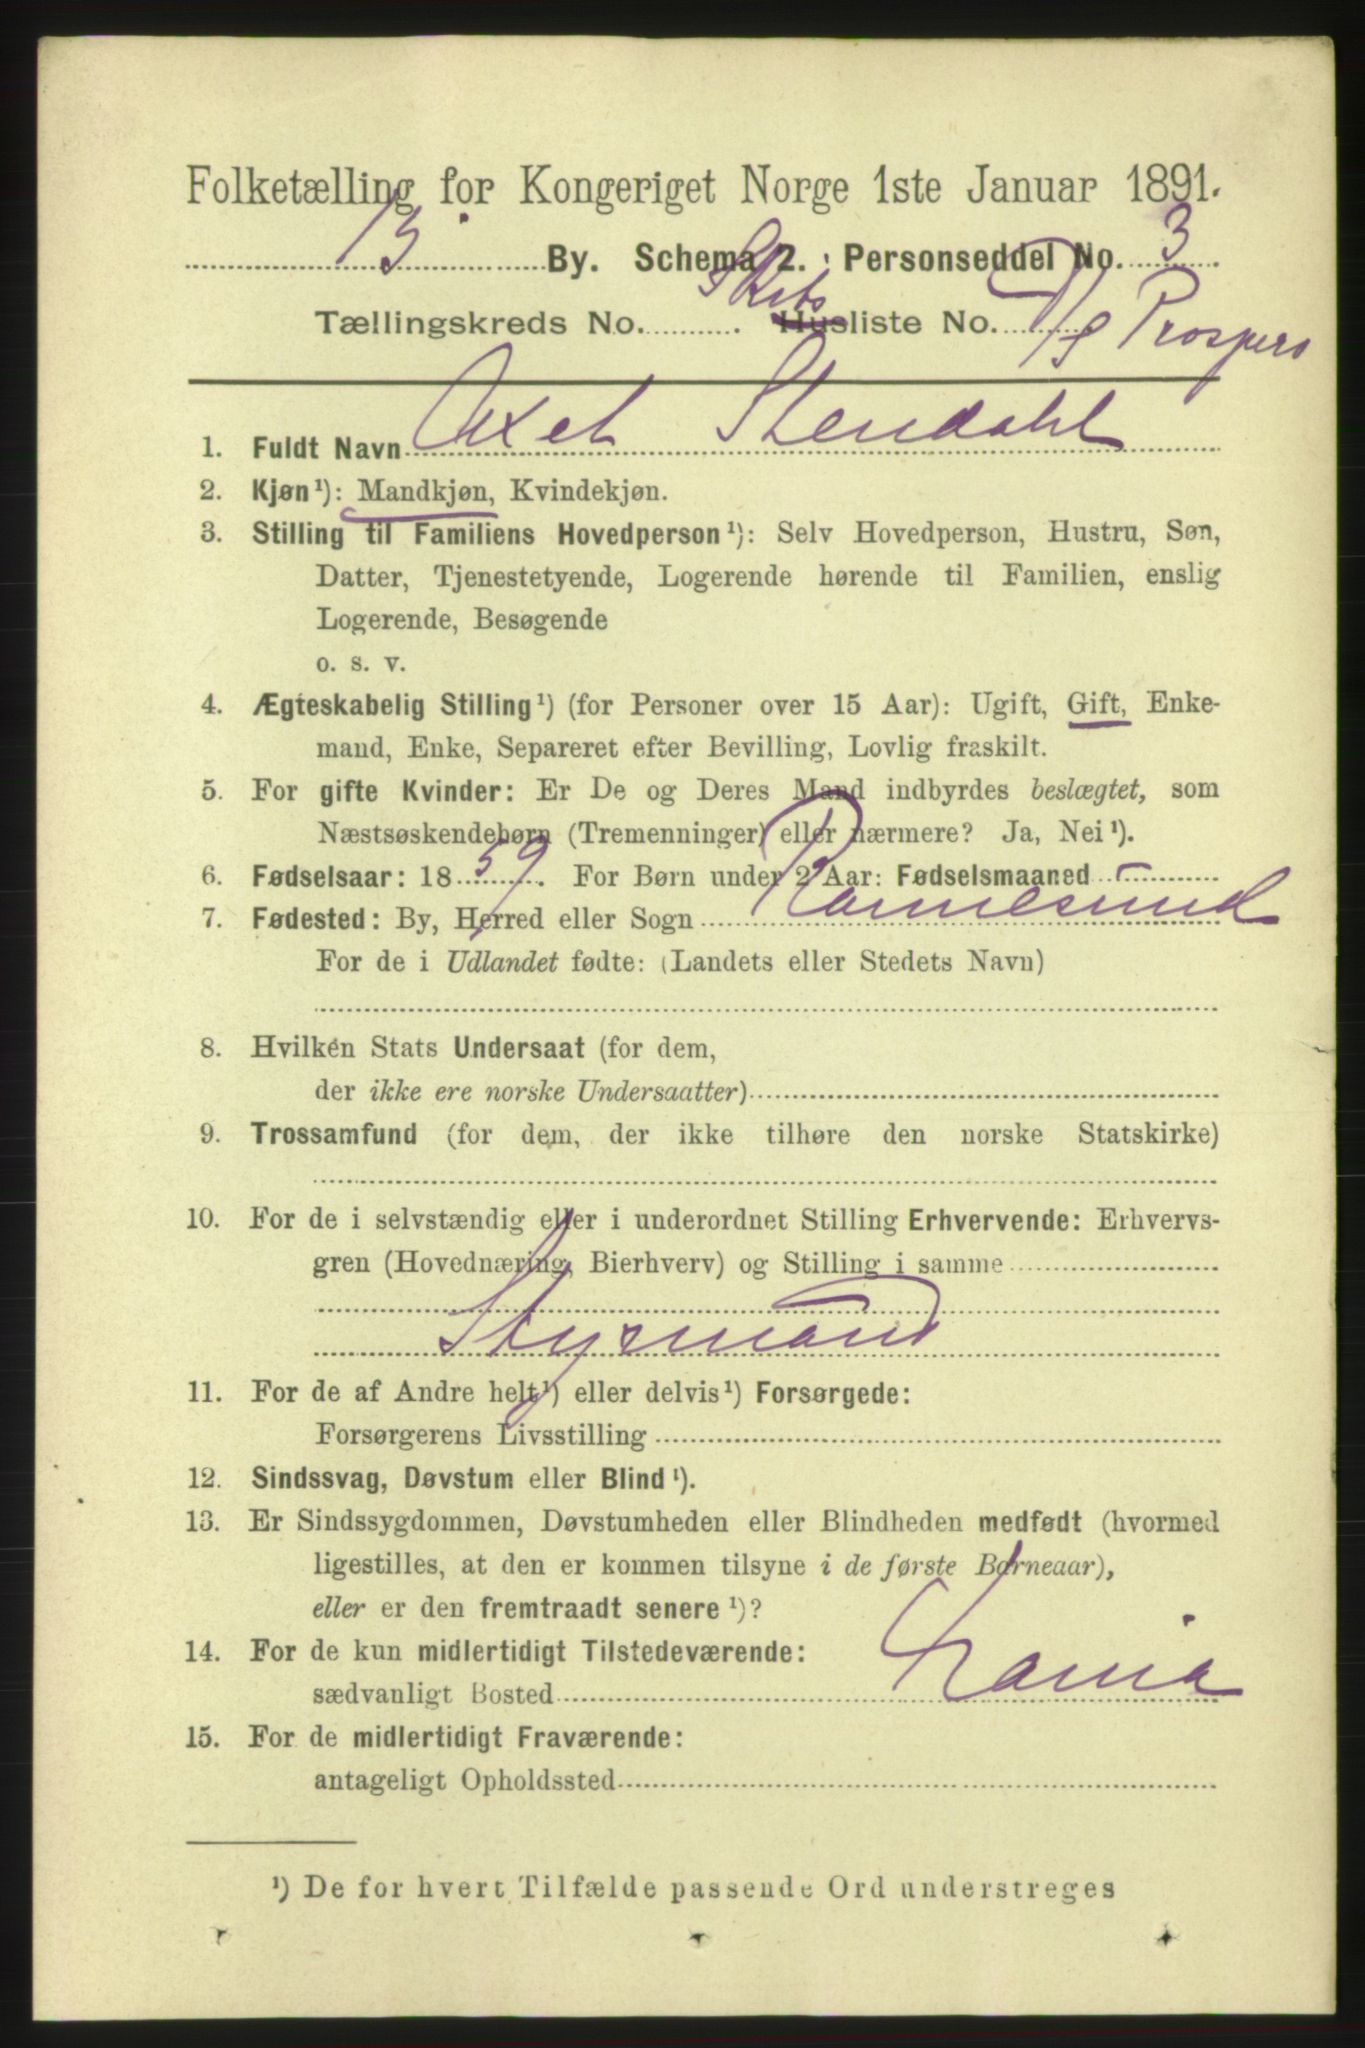 Folketælling for Kongeriget Norge 1ste Januar 1891.
13 By. Schema 2. Personseddel No. 3
Tællingskreds No. Skibs Husliste No. D/S Prospero
1. Fuldt Navn Axel Stendahl
2. Kjøn¹): Mandkjøn, Kvindekjøn.
3. Stilling til Familiens Hovedperson¹): Selv Hovedperson, Hustru, Søn,
Datter, Tjenestetyende, Logerende hørende til Familien, enslig
Logerende, Besøgende
o. s. v.
4. Ægteskabelig Stilling¹) (for Personer over 15 Aar): Ugift, Gift, Enke-
mand, Enke, Separeret efter Bevilling, Lovlig fraskilt.
5. For gifte Kvinder: Er De og Deres Mand indbyrdes beslægtet, som
Næstsøskendebørn (Tremenninger) eller nærmere? Ja, Nei¹).
6. Fødselsaar: 1859. For Børn under 2 Aar: Fødselsmaaned
7. Fødested: By, Herred eller Sogn Ramlesund
For de i Udlandet fødte: (Landets eller Stedets Navn)
8. Hvilken Stats Undersaat (for dem,
der ikke ere norske Undersaatter)
9. Trossamfund (for dem, der ikke tilhøre den norske Statskirke)
10. For de i selvstændig eller i underordnet Stilling Erhvervende: Erhvervs-
gren (Hovednæring, Bierhverv) og Stilling i samme
Styrmand
11. For de af Andre helt¹) eller delvis¹) Forsørgede:
Forsørgerens Livsstilling
12. Sindssvag, Døvstum eller Blind¹).
13. Er Sindssygdommen, Døvstumheden eller Blindheden medfødt (hvormed
ligestilles, at den er kommen tilsyne i de første Barneaar),
eller er den fremtraadt senere¹)?
14. For de kun midlertidigt Tilstedeværende:
sædvanligt Bosted
15. For de midlertidigt Fraværende:
antageligt Opholdssted
¹) De for hvert Tilfælde passende Ord understreges